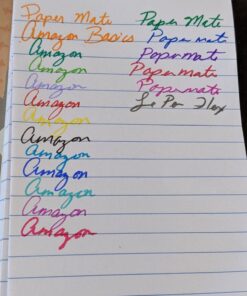 Paper Mate
Amazon Basics
Amazon
Amazon
Amazon
Amazon
Amazon
Amazon
Amazon
Amazon
Amazon
Amazon
Amazon
Paper Mate
Papermate
Papermate
Papermate
Papermate
Le Pen Flex